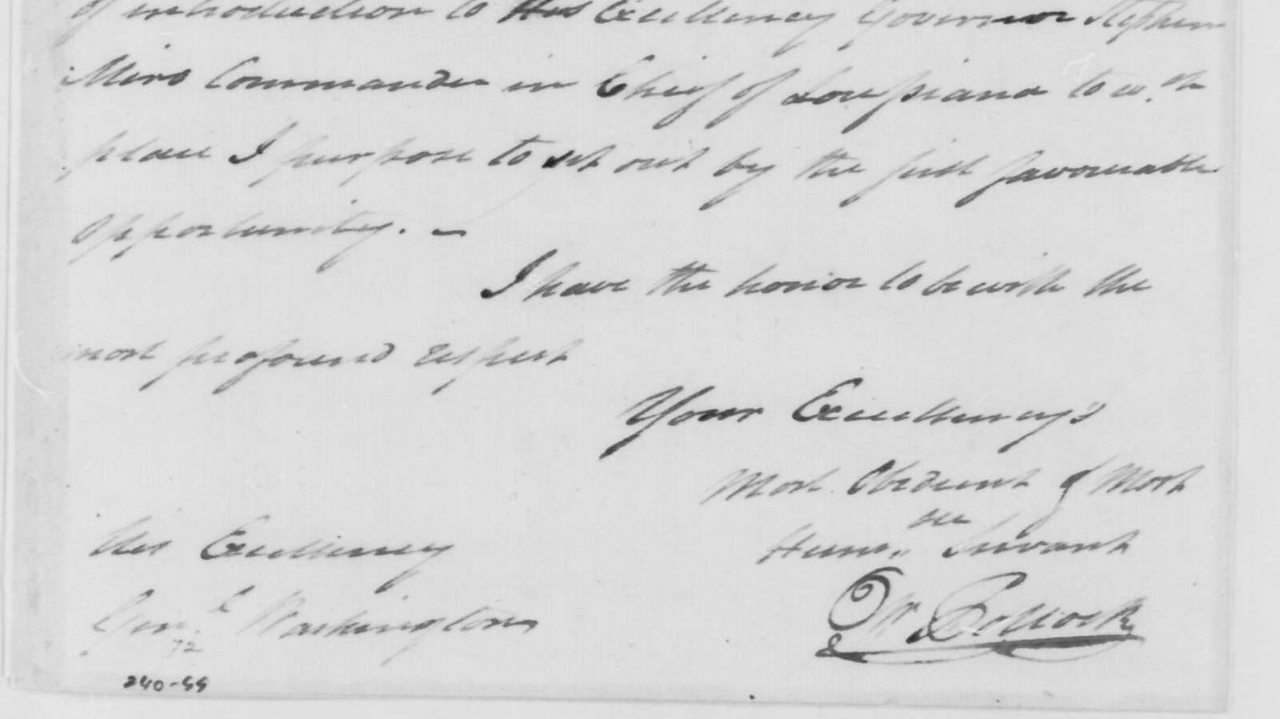 of introduction to His Excellency Governor Stephen
Miro Commander in Chief of Louisiana to w.ch
place I purpose to set out by the first favourable
opportunity. –
I have the honor to be with the
most profound respect
Your Excellency's
Most Obedient & Most
Hum.ble Servant
His Excellency
Gen.l Washington
Pollock
72
240-99